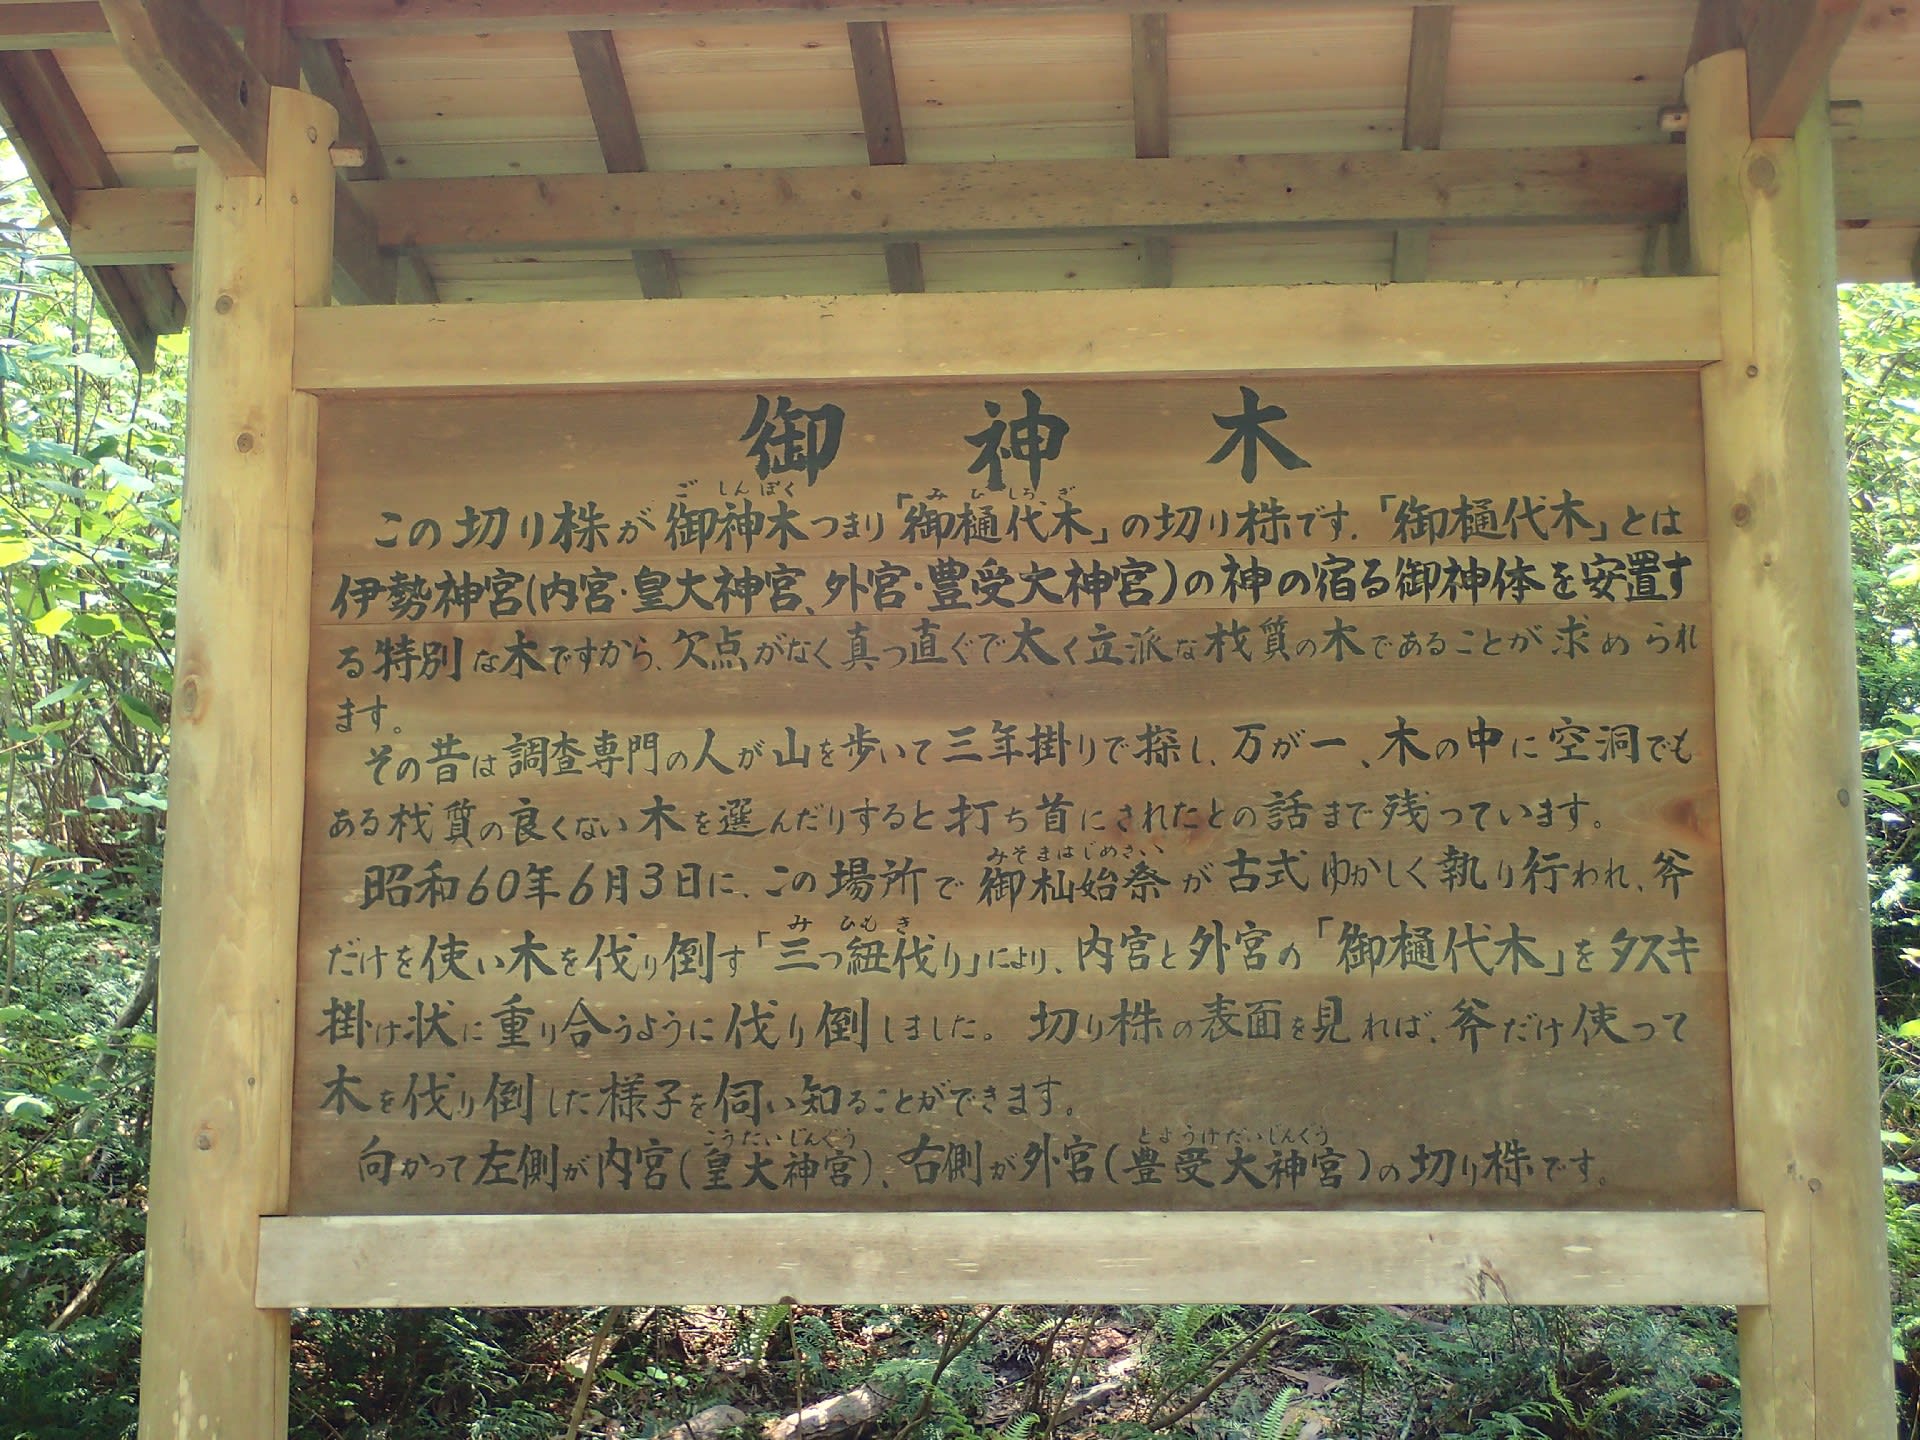 御神木
ごしんぼく みひしろぎ
この切り株が御神木つまり「御樋代木」の切り株です.「御樋代木」とは
伊勢神宮(内宮・皇大神宮、外宮・豊受大神宮)の神の宿る御神体を安置す
る特別な木ですから、欠点がなく真っ直ぐで太く立派な材質の木であることが求められ
ます。
その昔は調査専門の人が山を歩いて三年掛りで探し、万が一、木の中に空洞でも
ある材質の良くない木を選んだりすると打ち首にされたとの話まで残っています。
みそまはじめさい
昭和60年6月3日に、この場所で御杣始祭が古式ゆかしく執り行われ、斧
み ひも き
だけを使い木を伐り倒す「三つ紐伐り」により、内宮と外宮の「御樋代木」をタスキ
掛け状に重り合うように伐り倒しました。切り株の表面を見れば、斧だけ使って
木を伐り倒した様子を伺い知ることができます。
こうたいじんぐう とようけだいじんぐう
向かって左側が内宮(皇大神宮)、右側が外宮(豊受大神宮)の切り株です。